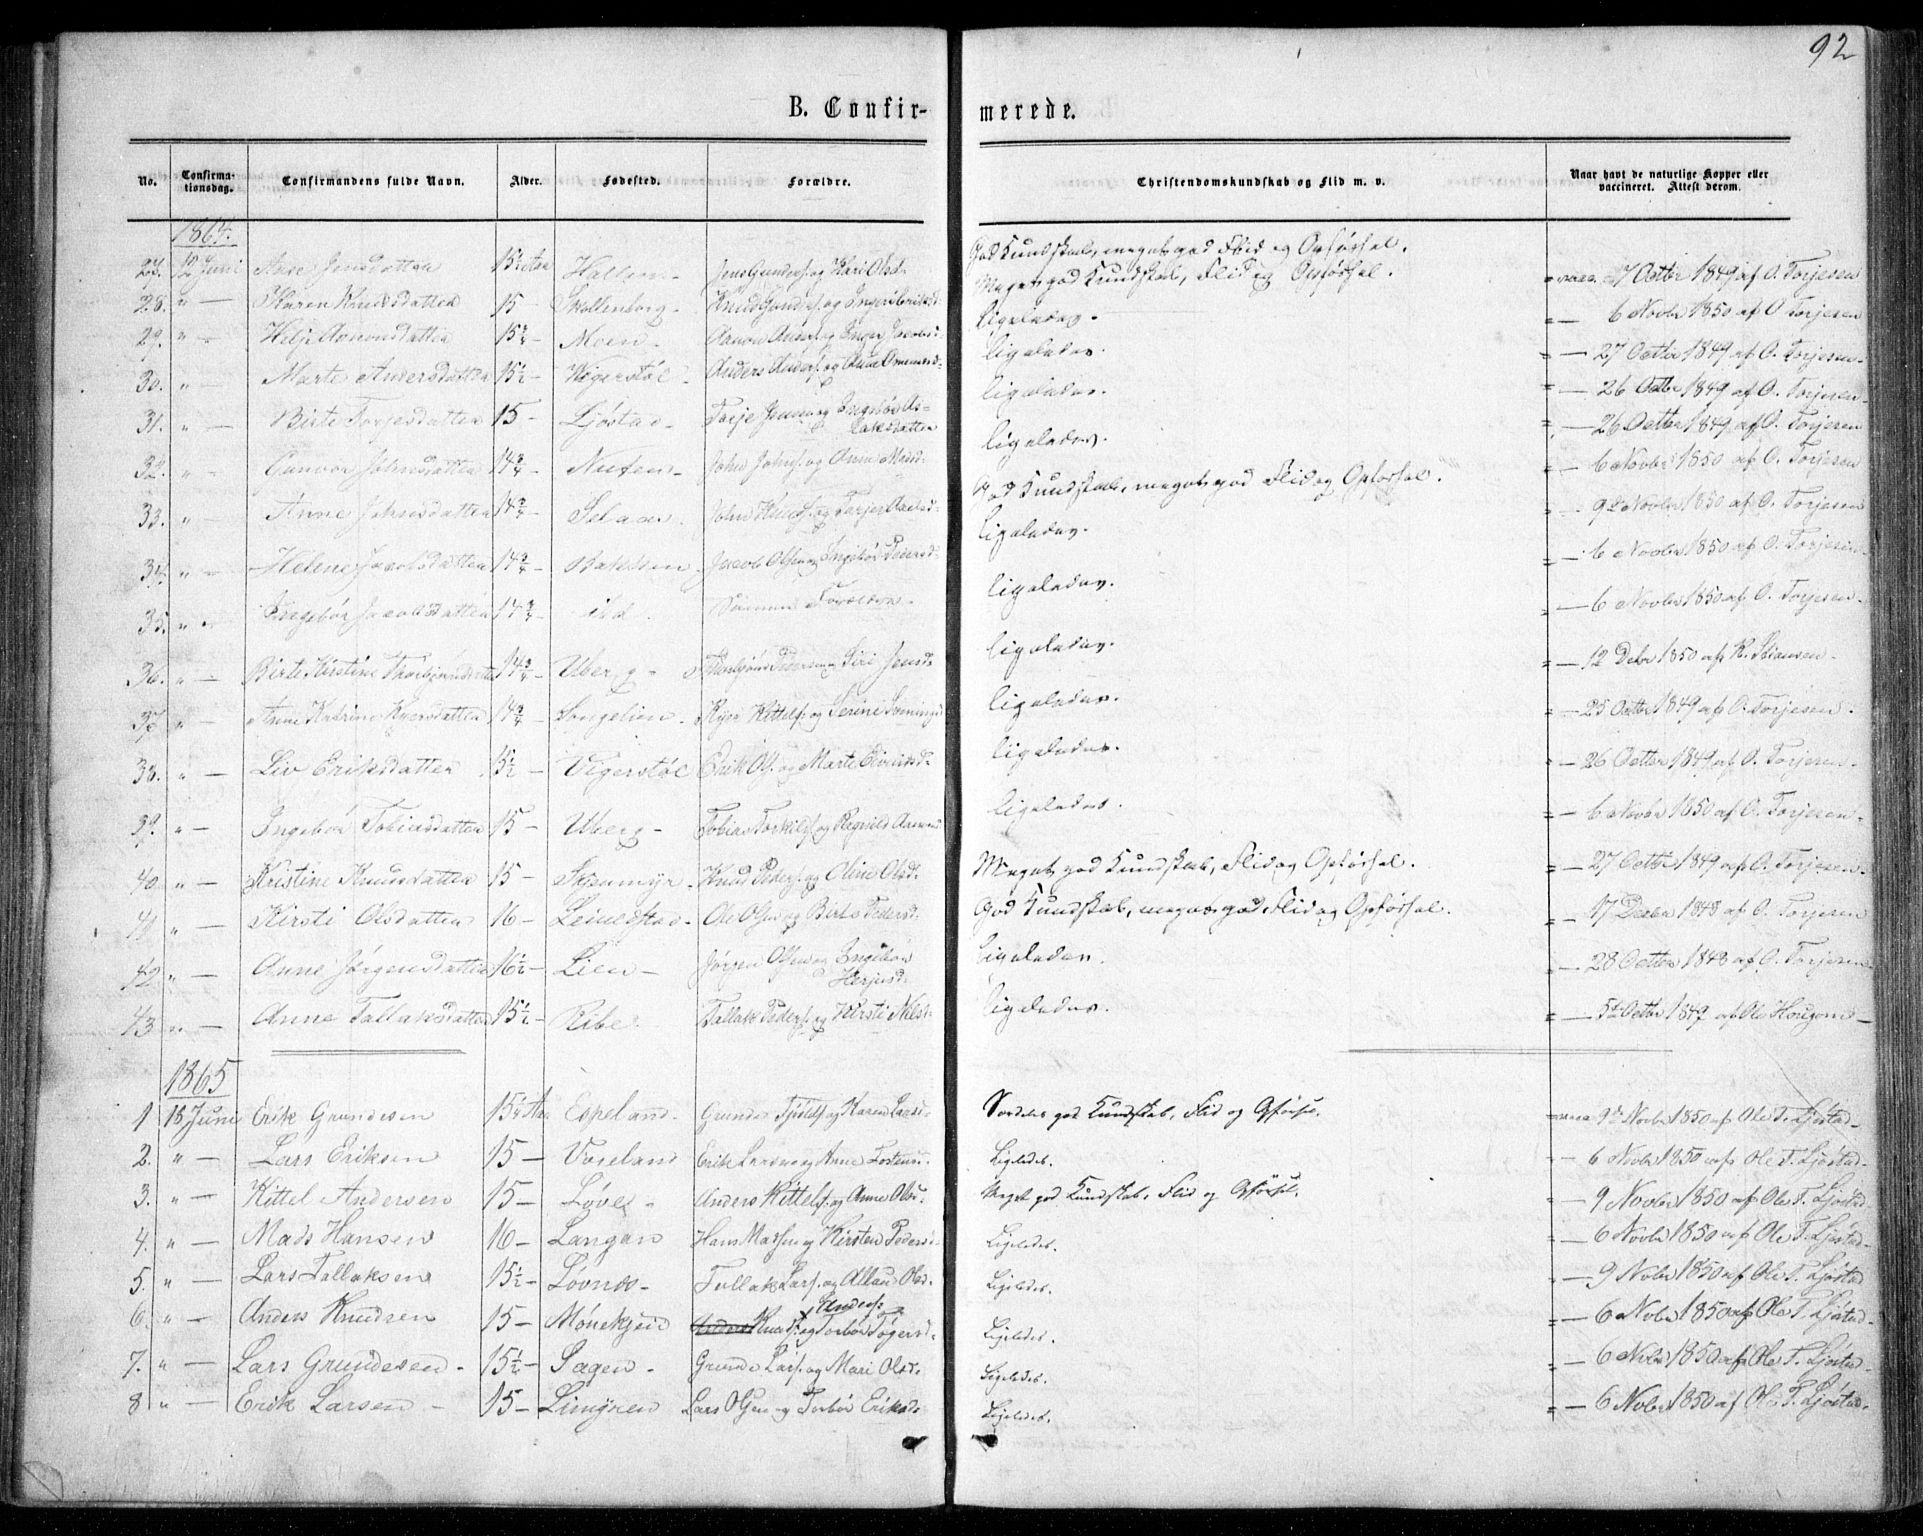 92
B. Confirmerede.
No. Confirmationsdag. Confirmandens fulde Navn. Alder. Fødested. Forældre. Christendomskundskab og Flid m. v. Naar havt de naturlige Kopper eller vaccineret. Attest derom.
1864.
27. 12 Juni Jensdatter 15½ Aar Jens Gunders. og Kari Olsd. God Kundskab, meget god Flid og Opførsel. vacc. 7 Octbr 1849 af O. Torjesen
28. " — Karen Knudsdatter 15 — Skollenborg — Meget god Kundskab, Flid og Opførsel. — 6 Novbr 1850 af O Torjesen
29. " — — Moen — Ligeledes. — 27 Octbr 1849 af O. Torjesen
30. " — Marte Andersdatter 15½ — Vigerstøl Ligeledes. — 26 Octbr 1849 af O. Torjesen
31. " — Birte Torjesdatter 15 — Ljøstad — Torje Jensen og Ingebor Aslaksdatter Ligeledes. — 26 Octbr 1849 af O. Torjesen
32. " — Gunvor Johnsdatter 14¾ — John Johns. og Anne Ligeledes. — 6 Novbr 1850 af O. Torjesen
33. " — Anne Johnsdatter 14¾ — Selaas God Kundskab, meget god Flid og Opførsel. — 9de Novbr 1850 af O. Torjesen
34. " — Helene Jacobsdatter 14¾ — Bakken Jacob Olsen og Ingebor Pedersd. Ligeledes. — 6 Novbr 1850 af O. Torjesen
35. " " Ingebor Jacobsdatter 14¾ — Samme Forældre Ligeledes. — 6 Novbr 1850 af O. Torjesen
36. " — Birte Kirstine Thorbjørnsdatter 14¾ — Uberg — Thorbjørn Pedersen og Siri Jensd. Ligeledes. — 12 Debr 1850 af
37. " Anne Katrine 14¾ — Songelien Ligeledes. — 25 Octbr 1849 af O. Torjesen
38. " — Liv Eriksdatter 15½ — Vigerstøl Erik Ols. og Marte Eivindsd. Ligeledes. — 26 Octbr 1849 af O. Torjesen
39. " — Ingebor Tobiasdatter 15 — Uberg — Tobias Torkils. og Regnild Ligeledes. — 6 Novbr 1850 af O. Torjesen
40. " — Kristine Knudsdatter 15 — Skjeumyr Knud Peders. og Oline Olsd. Meget god Kundskab, Flid og Opførsel. — 27 Octbr 1849 af O. Torjesen
41. " — Kirsti Olsdatter 16 — Ole Olsen og Birte Pedersd. God Kundskab, meget god Flid og Opførsel. — 17 Decbr 1848 af O Torjesen
42. " — Anne Jörgensdatter 16½ — Lien — Jörgen Olsen og Ingebor Herjusd. Ligeledes. — 28 Octbr 1848 af O. Torjesen
43. " — Anne Tallaksdatter 15½ — Ribe Tallak Peders. og Kirsti Nilsd. Ligeledes. — 5te Octbr 1849 af Ole Hougom
1865
1 18 Juni Erik Grundesen 15½ Aar Espeland Grunde og Karen Larsd. Særdeles god Kundskab, Flid og Opførsel. vacc. 9de Novbr 1850 af Ole T. Ljøstad
2. " — Lars Eriksen 15 — Voreland Erik Larsen og Anne Tostensd. Ligeledes. — 6 Novbr 1850 af Ole T. Ljøstad
3. " — Kittel Andersen 15 — Løvel — Anders Kittels. og Anne Olsd. Meget god Kundskab, Flid og Opførsel. — 9 Novbr 1850 af Ole T. Ljøstad
4. " — Mads Hansen 16 — Langan Hans Madsen og Kirsten Pedersd. Ligeledes. — 6 Novbr 1850 af Ole T. Ljøstad
5. " — Lars Tallaksen 15½ — Løvnes — Tallak Lars. og Allau Olsd. Ligeledes. — 9 Novbr 1850 af Ole T. Ljøstad
6. " — Anders Knudsen 15 — Mönekjen Knud Anders. og Torbor Tögersd. Ligeledes. — 6 Novbr 1850 af Ole T. Ljøstad
7. " — Lars Grundesen — 15½ — Sagen — Grunde Lars. og Mari Olsd. Ligeledes. — 6 Novbr 1850 af Ole T. Ljøstad
8 " — Erik Larsen — 15 — Limyren Lars Olsen og Torbor Eriksd. Ligeledes. — 6 Novbr 1850 af Ole T. Ljøstad